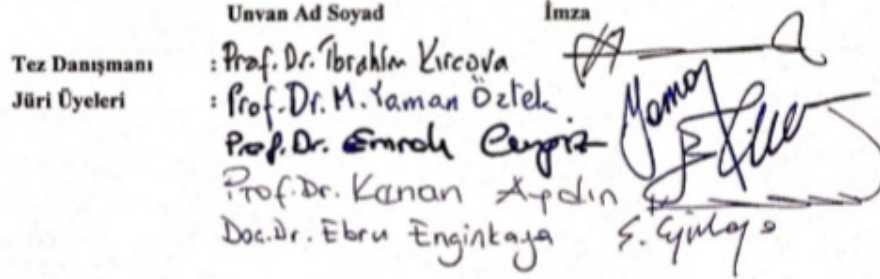 Unvan Ad Soyad İmza
Tez Danışmanı : Prof. Dr. İbrahim Kırcova
Jüri Üyeleri : Prof. Dr. M. Yaman Öztek
Prof. Dr. Emrah Cengiz
Prof. Dr. Kenan Aydın
Doc. Dr. Ebru Enginkaya